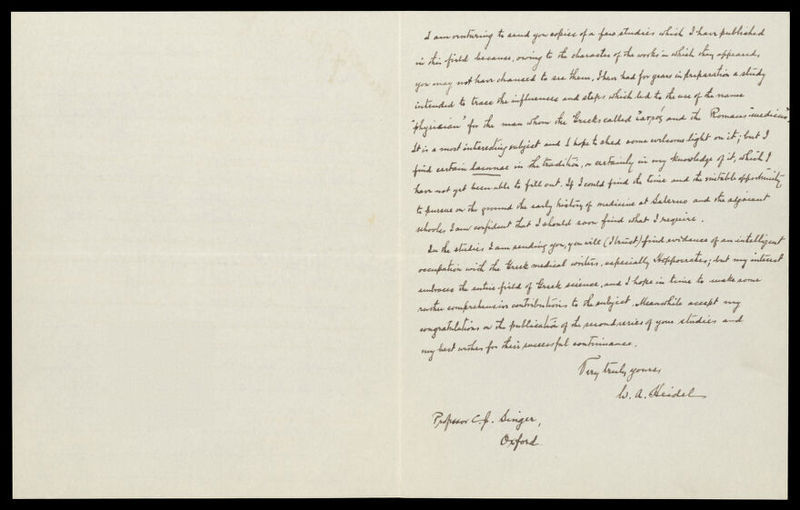 I am venturing to send you copies of a few studies which I have published
in this field because, owing to the character of the works in which they appeared,
you may not have chanced to see them. I have had for years in preparation a study
intended to trace the influences and steps which led to the use of the name
"physician" for the man whom the Greeks called "ἰατρός" and the Romans "medicus".
It is a most interesting subject and I hope to shed some welcome light on it; but I
find certain lacunae in the tradition, or certainly in my knowledge of it, which I
have not yet been able to fill out. If I could find the time and the suitable opportunity
to pursue on the ground the early history of medicine at Salerno and the adjacent
schools I am confident that I should soon find what I require.
In the studies I am sending you, you will (I trust) find evidence of an intelligent
occupation with the Greek medical writers, especially Hippocrates; but my interest
embraces the entire field of Greek science, and I hope in time to make some
rather comprehensive contributions to the subject. Meanwhile accept my
congratulations on the publication of the second series of your studies and
my best wishes for their successful continuance.
Very truly yours,
W. A. Heidel
Professor C. J. Singer,
Oxford.